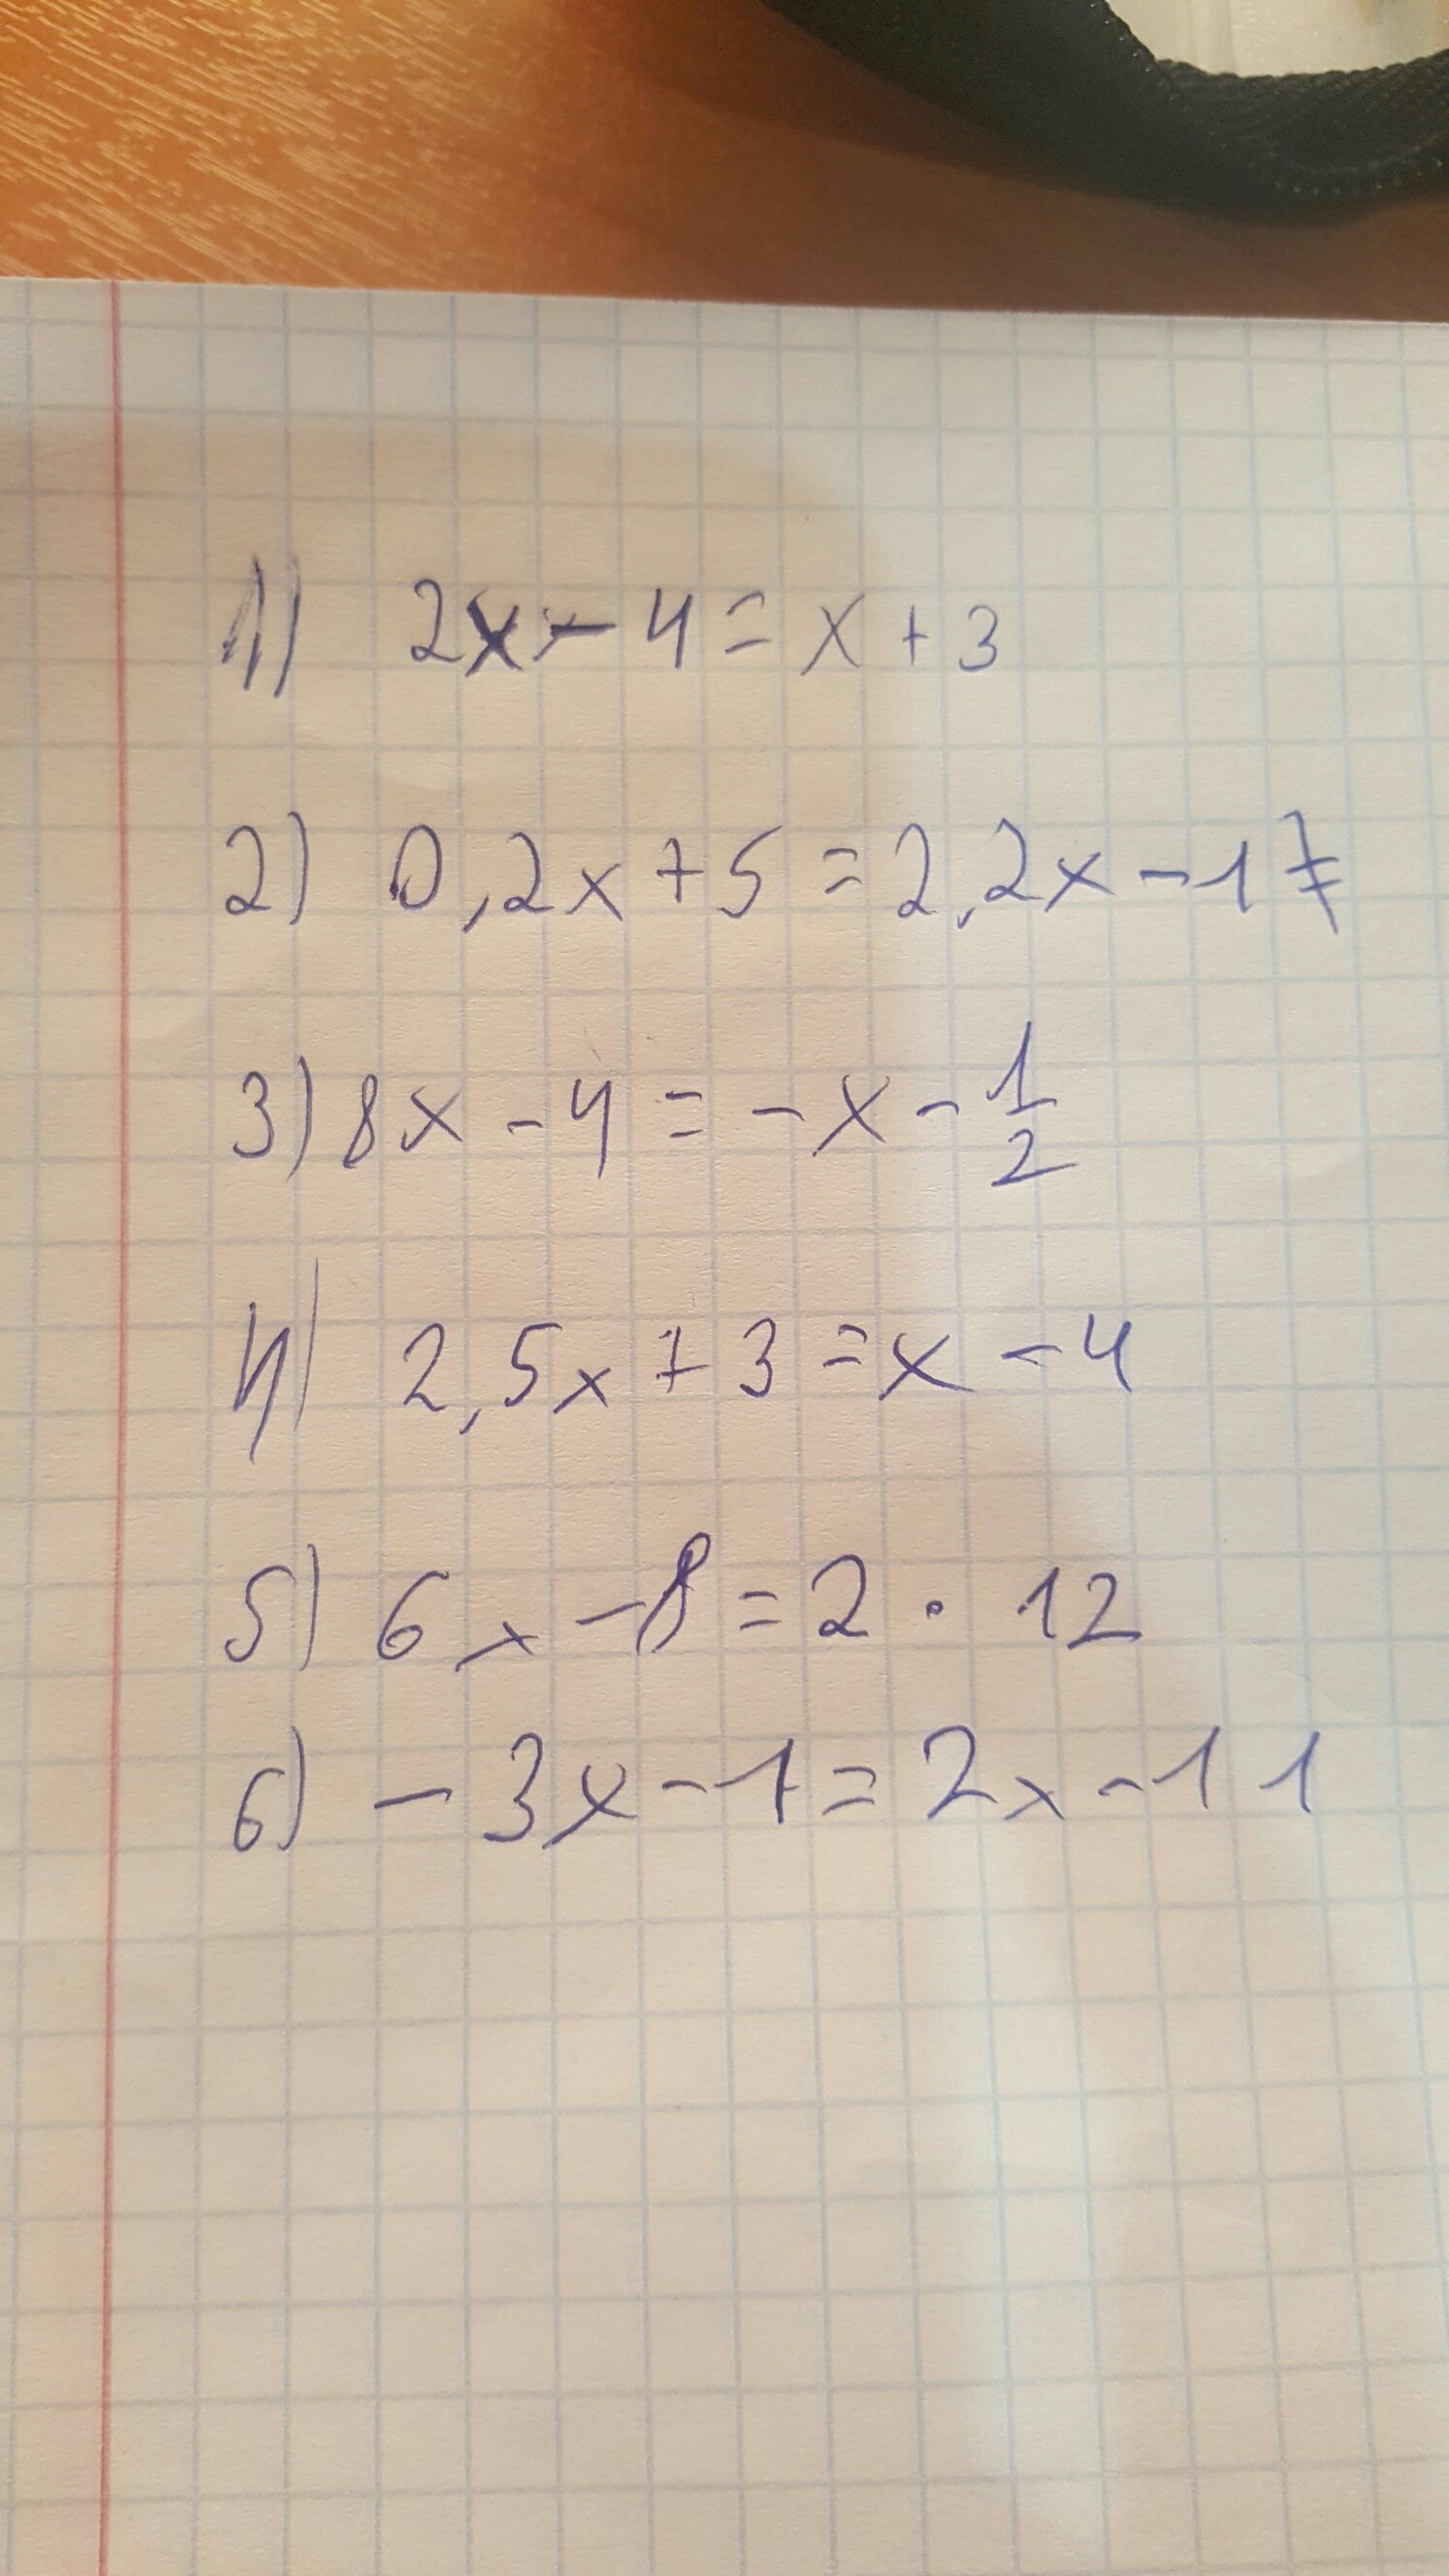 1) 2x - 4 = x + 3
2) 0,2x + 5 = 2,2x - 17
3) 8x - 4 = - x - 1/2
4) 2,5x + 3 = x - 4
5) 6x - 8 = 2 · 12
6) - 3x - 1 = 2x - 11